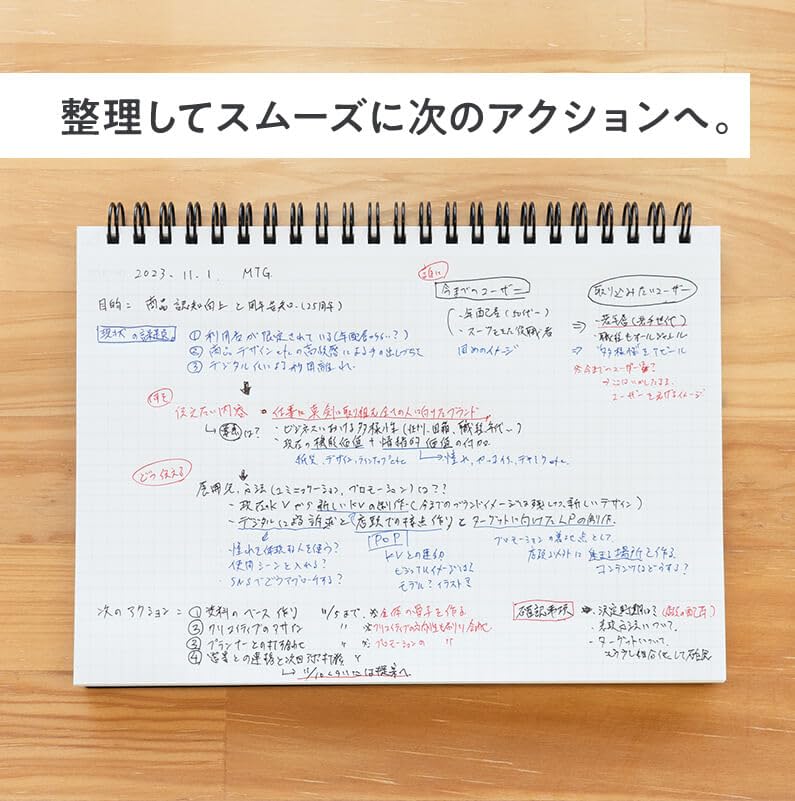 整理してスムーズに次のアクションへ。
2023.11.1. MTG
誰に
今までのユーザー
取り込みたいユーザー
目的= 商品認知向上と周年告知.(25周年)
・年配層(50代〜)
・スーツをきた役職者
固めのイメージ
⇒ ・若年層(若手世代)
・職種もオールジャンル
⇒ "多様性"をアピール
現状の課題
① 利用者が限定されている(年配層から…?)
② 商品デザインetcの高級感による手の出しづらさ
③ デジタル化による紙離れ.
※今までのユーザー層?
→ここはいかしたまま.
ユーザーを広げるイメージ
何を
伝えたい内容 = 仕事に真剣に取り組む全ての人に向けたブランド
→ 写真は?
・ビジネスにおける多様性(性別、国籍、職種、年代〜)
・現在の機能価値+情緒的価値の付加
紙質、デザイン、ラインナップetc
→憧れ、
どう伝える
展開先、方法(コミュニケーション、プロモーション)は??
・現在のKVから新しいKVの制作.(今までのブランドイメージは残しつつ、新しいデザイン)
・デジタルによる訴求と店頭での接点作りとターゲットに向けたLPの制作.
POP
・憧れを体現する人を使う?
使用シーンを入れる?
・SNSでどうアプローチする?
KVとの連動
モデル?イラスト?
プロモーションの着地点として
店頭以外に集まる場所を作る
コンテンツはどうする?
次のアクション=
① 資料のベース作り 11/5まで. ※全体の骨子を作る
② クリエイティブのアサイン 〃 ※クリエイティブの方向性も
③ プランナーとの打合せ 〃 ※プロモーションの 〃
④ 営業との連携と次回
→ 11/10くらいには提案へ.
確認事項
・決定時期は?
・
・ターゲットについて.
して確認